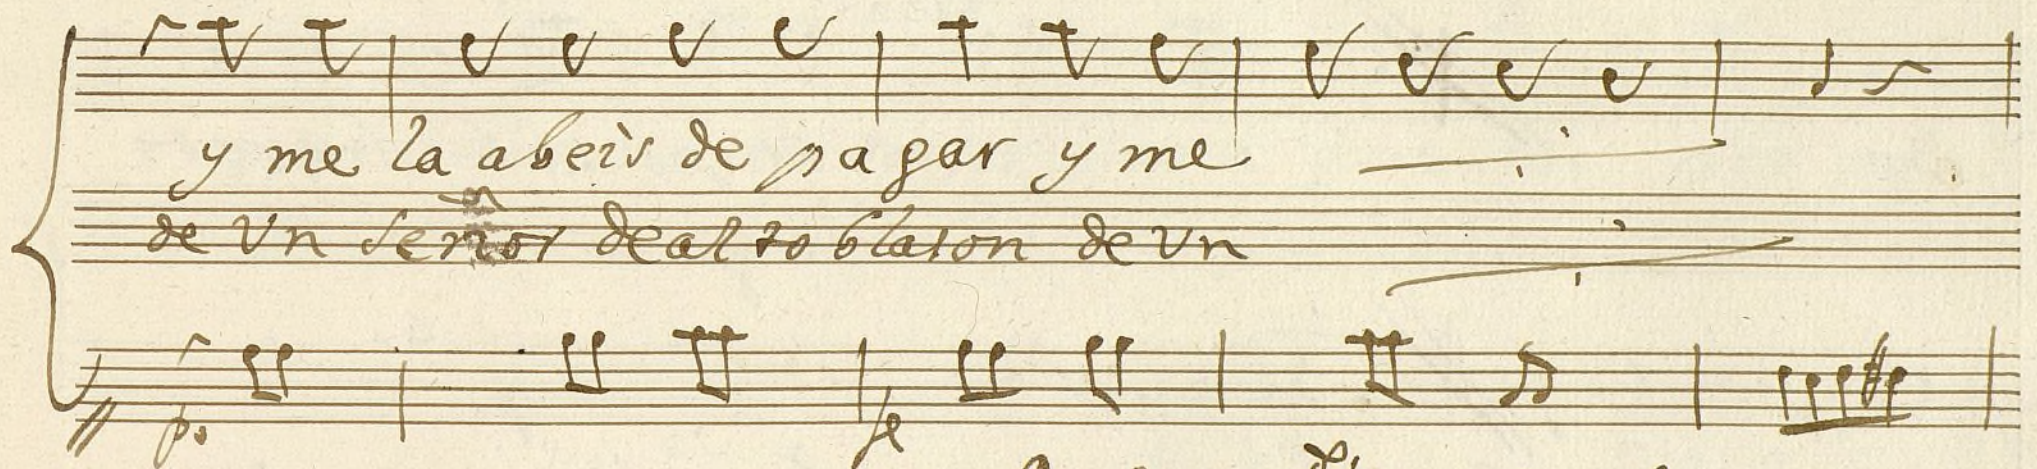 y me la abeis de pagar y me
de Un señor de alto blason de Un
p.o fe